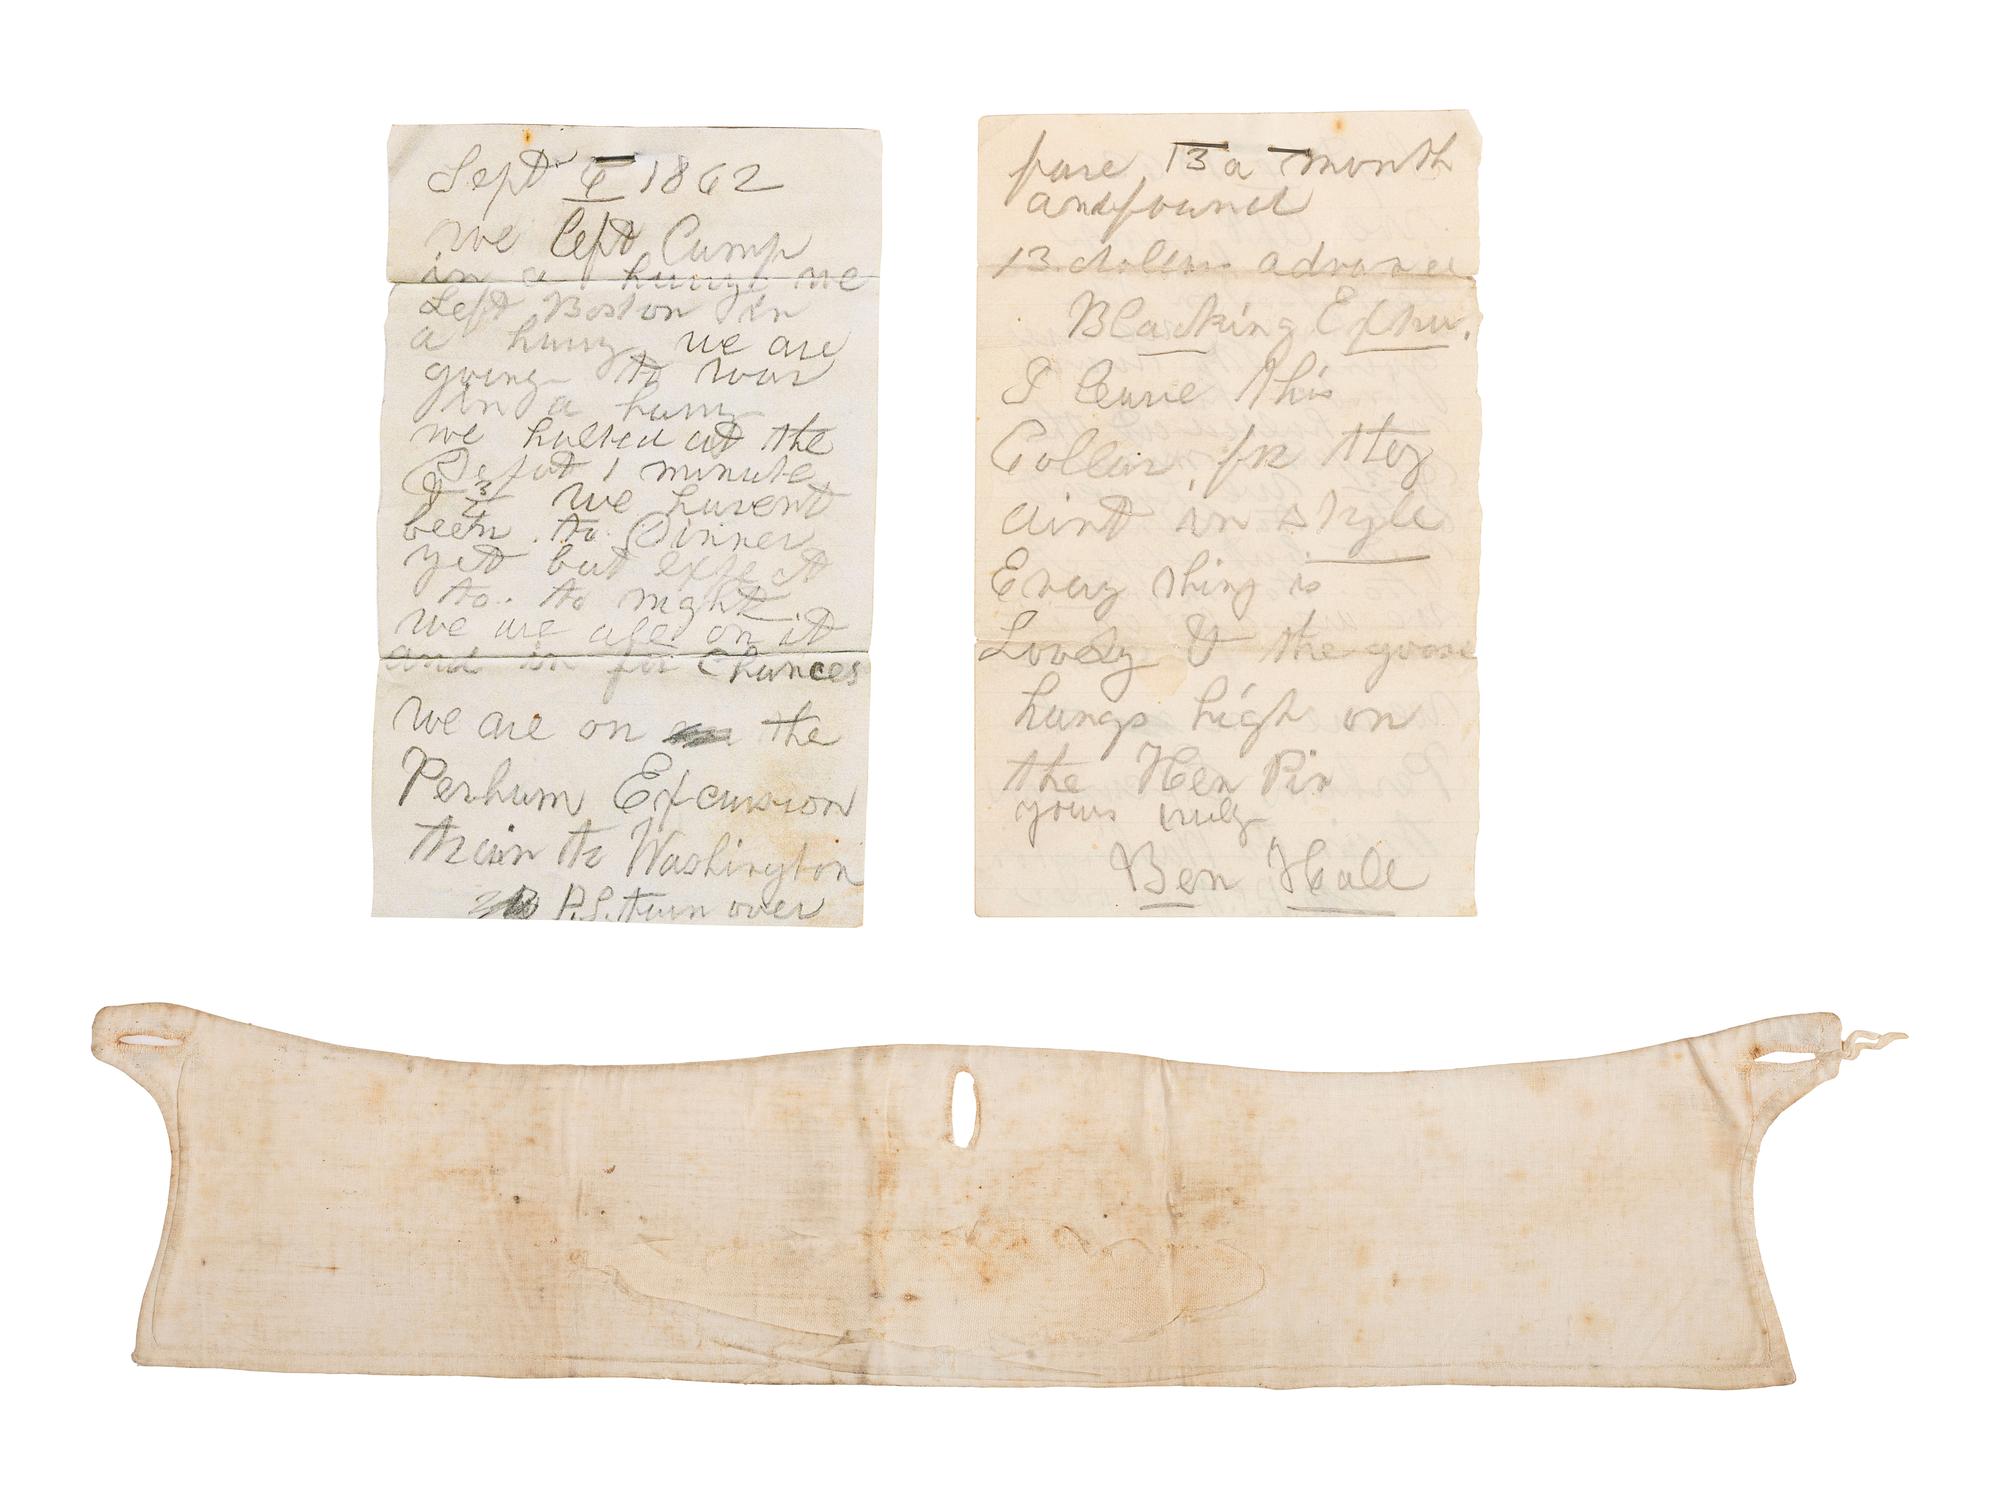 Sept 6 1862
we left Camp
in a hurry we
Left Boston in
a hurry we are
going to war
in a hurry
we halted at the
Depot 1 minute
& 3/4 we havent
been to Dinner
yet but expect
to. to night
we are all on it
and in for Chances
We are on the
Perham Excursion
train to Washington
P.S. turn over
fare 13 a month
and found
13 dollars advance
Blacking Extra.
I leave this
Collar for they
aint in style
Every thing is
Lovely & the goose
hangs high on
the Hen Pin
yours truly
Ben Hall